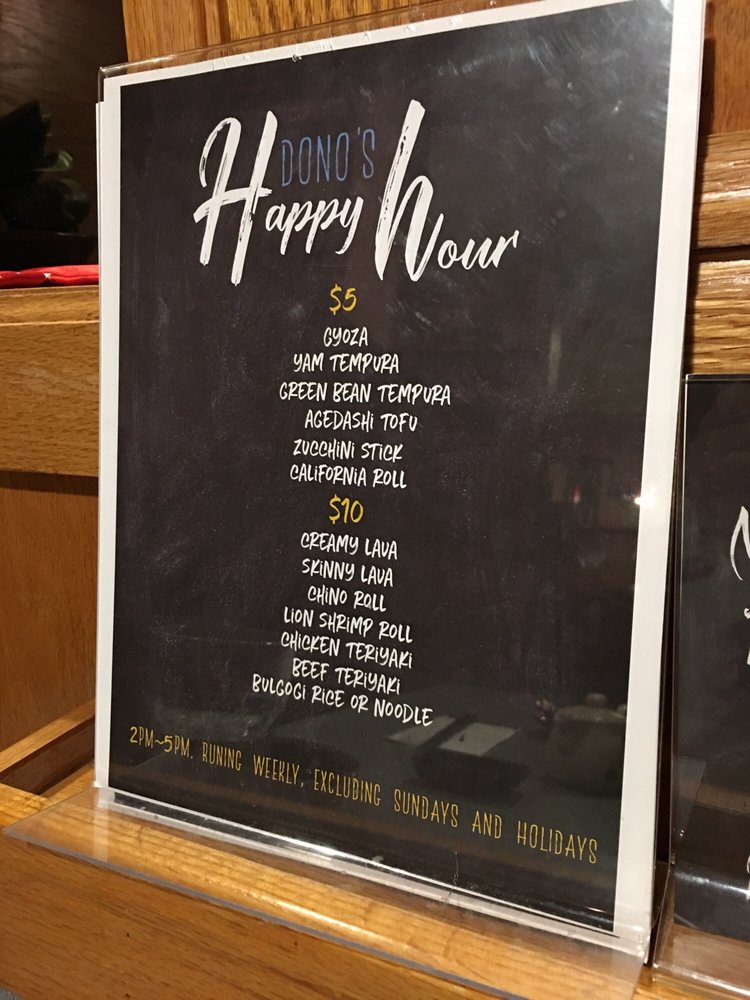 DONO'S
Happy Hour
$5
GYOZA
YAM TEMPURA
GREEN BEAN TEMPURA
AGEDASHI TOFU
ZUCCHINI STICK
CALIFORNIA ROLL
$10
CREAMY LAVA
SKINNY LAVA
CHINO ROLL
LION SHRIMP ROLL
CHICKEN TERIYAKI
BEEF TERIYAKI
BULGOGI RICE OR NOODLE
2PM~5PM. RUNING WEEKLY, EXCLUDING SUNDAYS AND HOLIDAYS